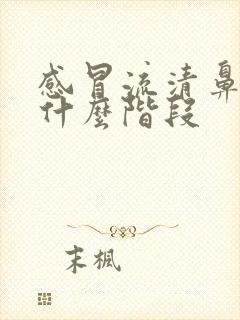 感冒流清鼻
什麼階段
末楓